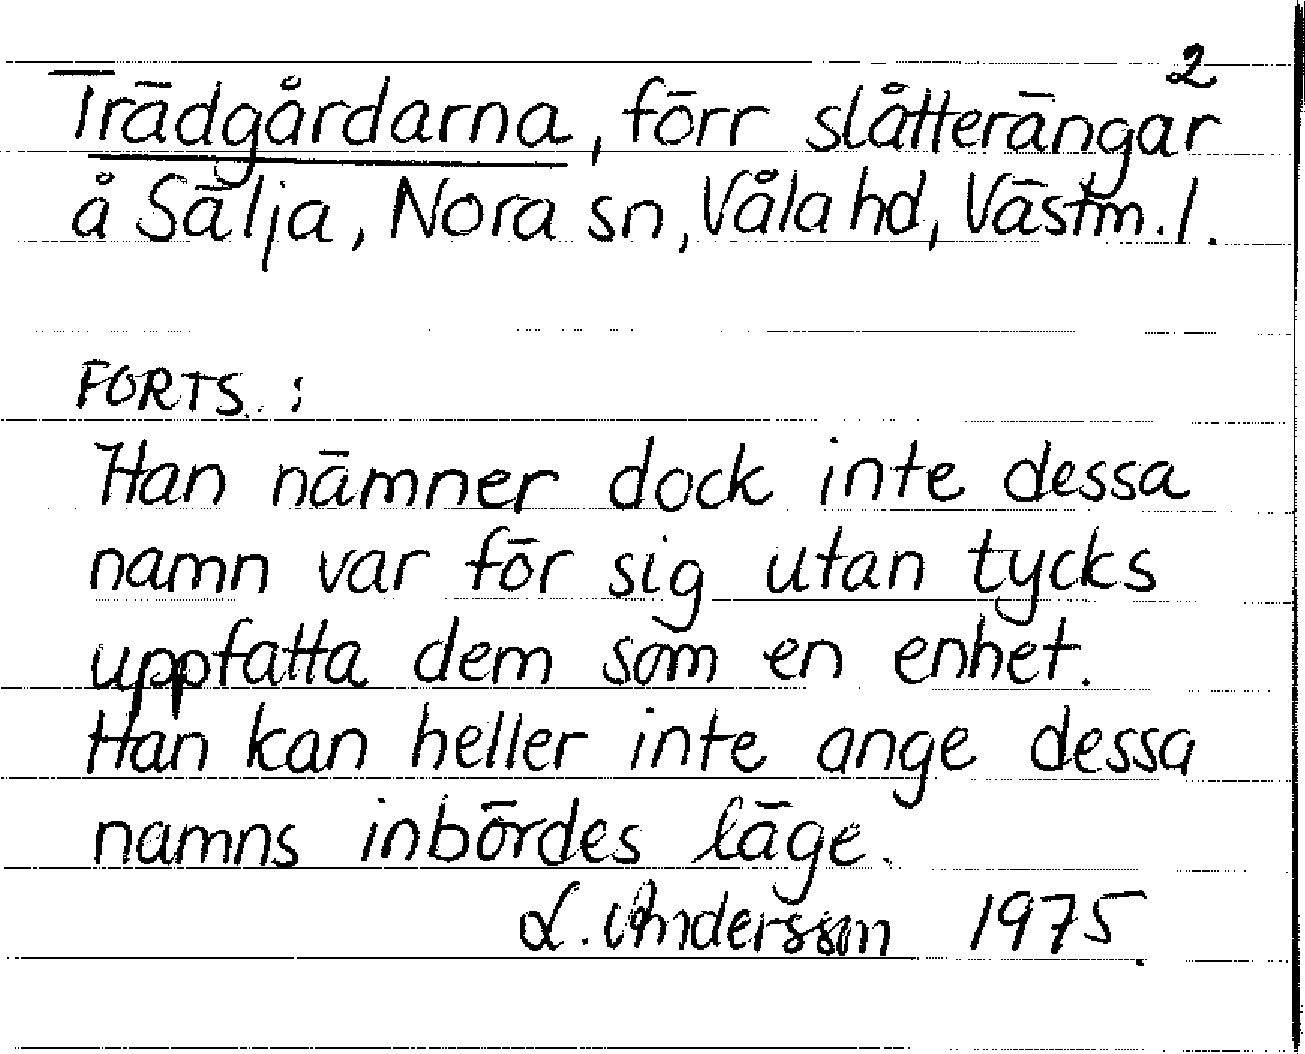 2
Trädgårdarna, förr slåtterängar
å Sälja, Nora sn, Våla hd, Västm. l.
FORTS. :
Han nämner dock inte dessa
namn var för sig utan tycks
uppfatta dem som en enhet.
Han kan heller inte ange dessa
namns inbördes läge.
L. Andersson 1975.